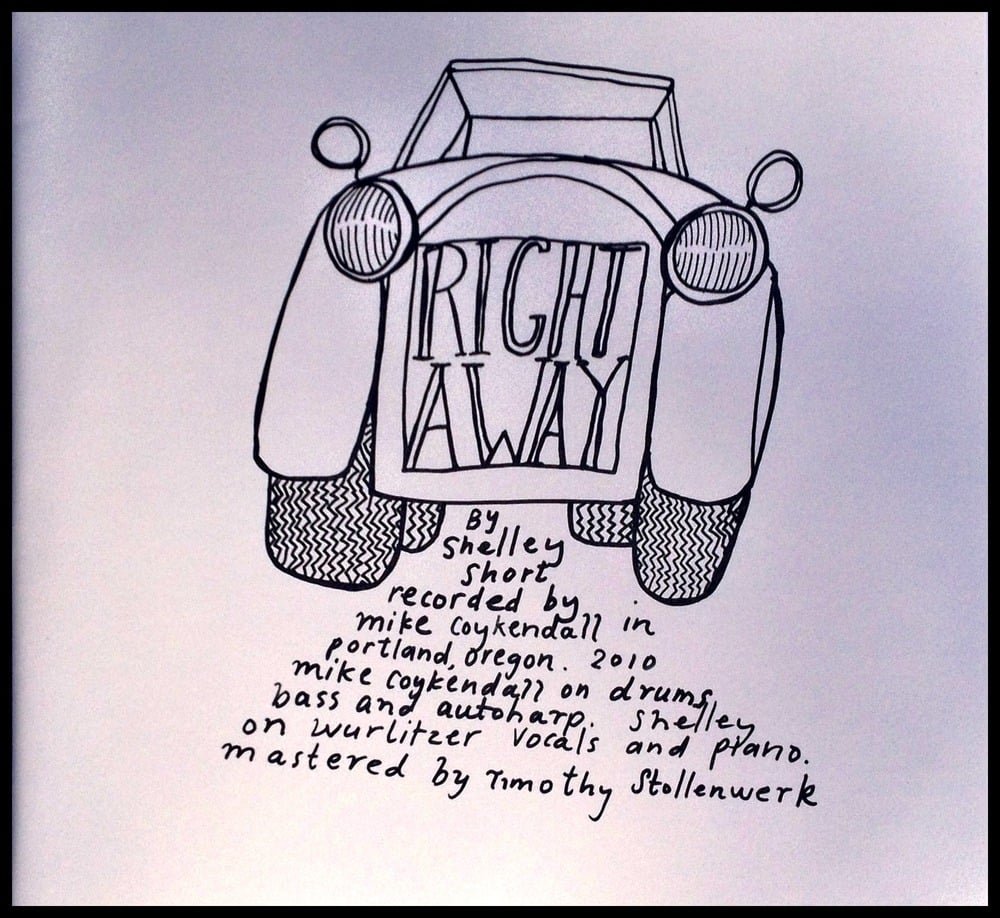 RIGHT
AWAY
By
Shelley
Short
recorded by
mike coykendall in
portland, oregon. 2010
mike coykendall on drums,
bass and autoharp. Shelley
on wurlitzer vocals and piano.
mastered by Timothy Stollenwerk